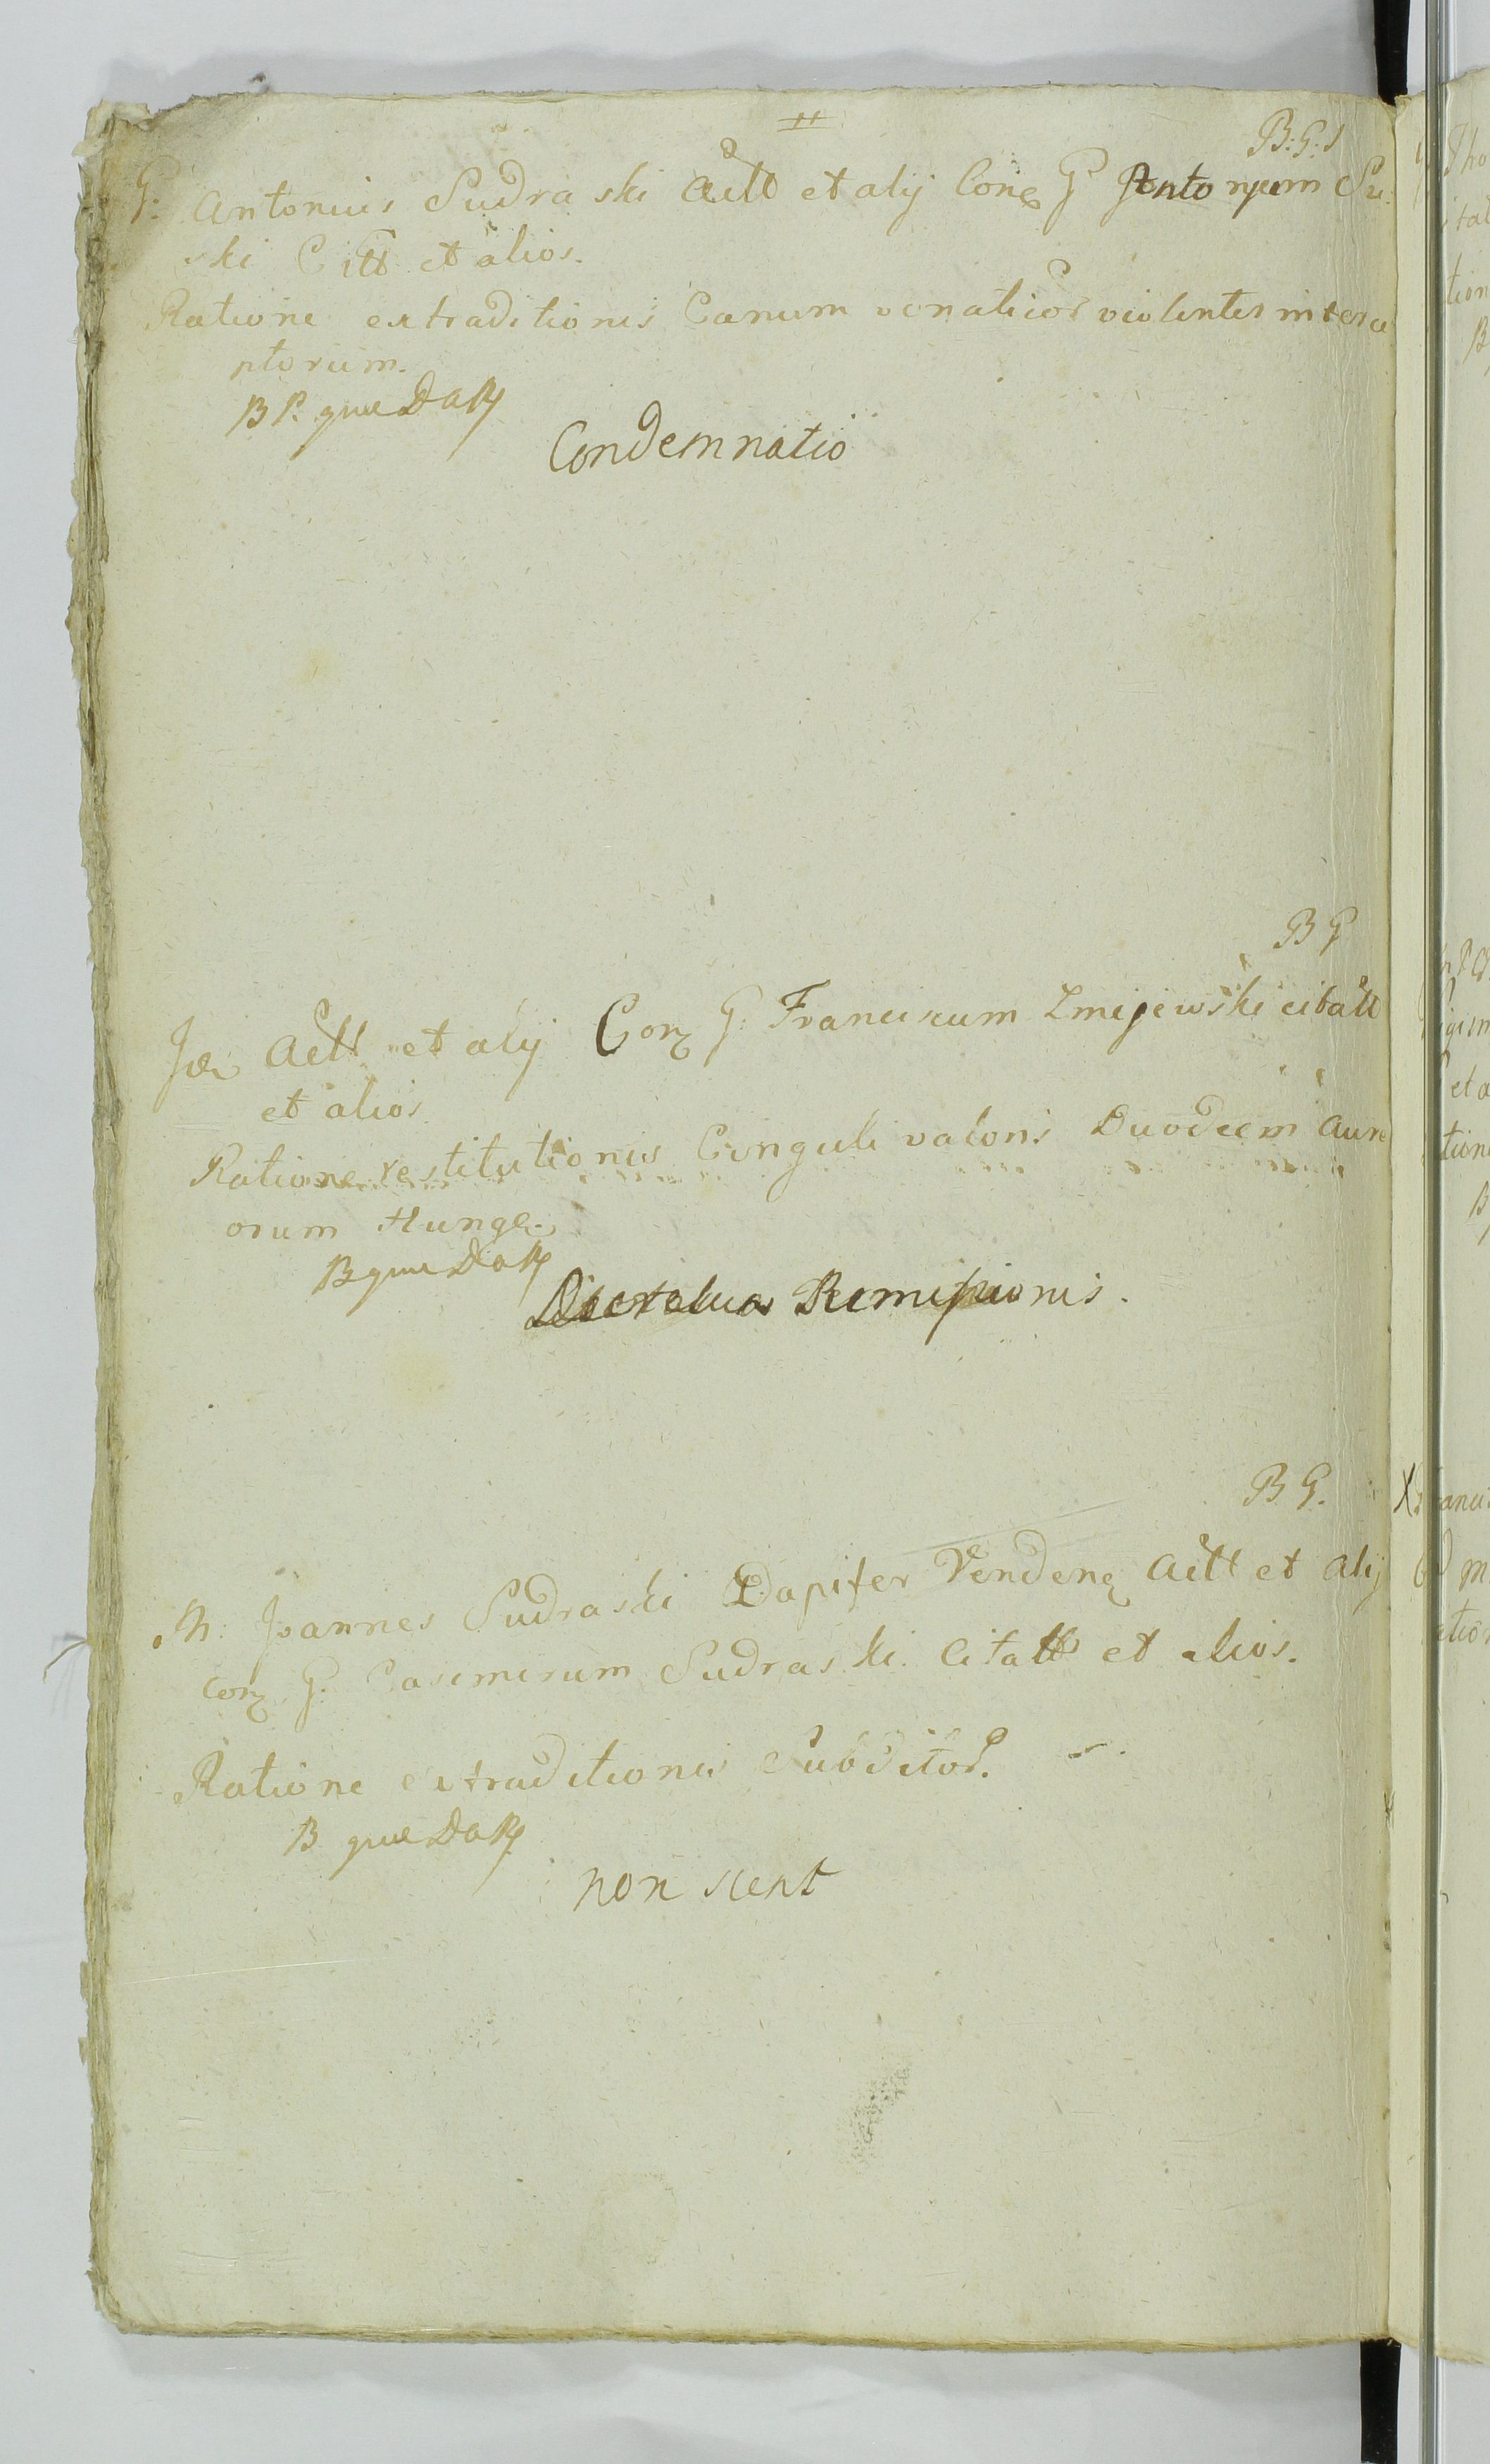 B: G: S
G: Antonius Sudraski Actt et alij Conq G Antonyum Su
ski Citt et alios.
Ratione extraditionis Canum venaticor violenter interce
ptorum.
B P. quae
Condemnatio
B G
Actt et alij Conq G: Franciscum Zmijewski citatt
et alios
Ratione restitutionis Cinguli valoris Duodecem Aure
orum Hung
B quae
Remissionis.
B G.
M: Joannes Sudraski Dapifer Vendenq Actt et alij
Conq G: Casimirum Sudraski Citatt et alios.
Ratione extraditionis Subditor.
B quae
non sient